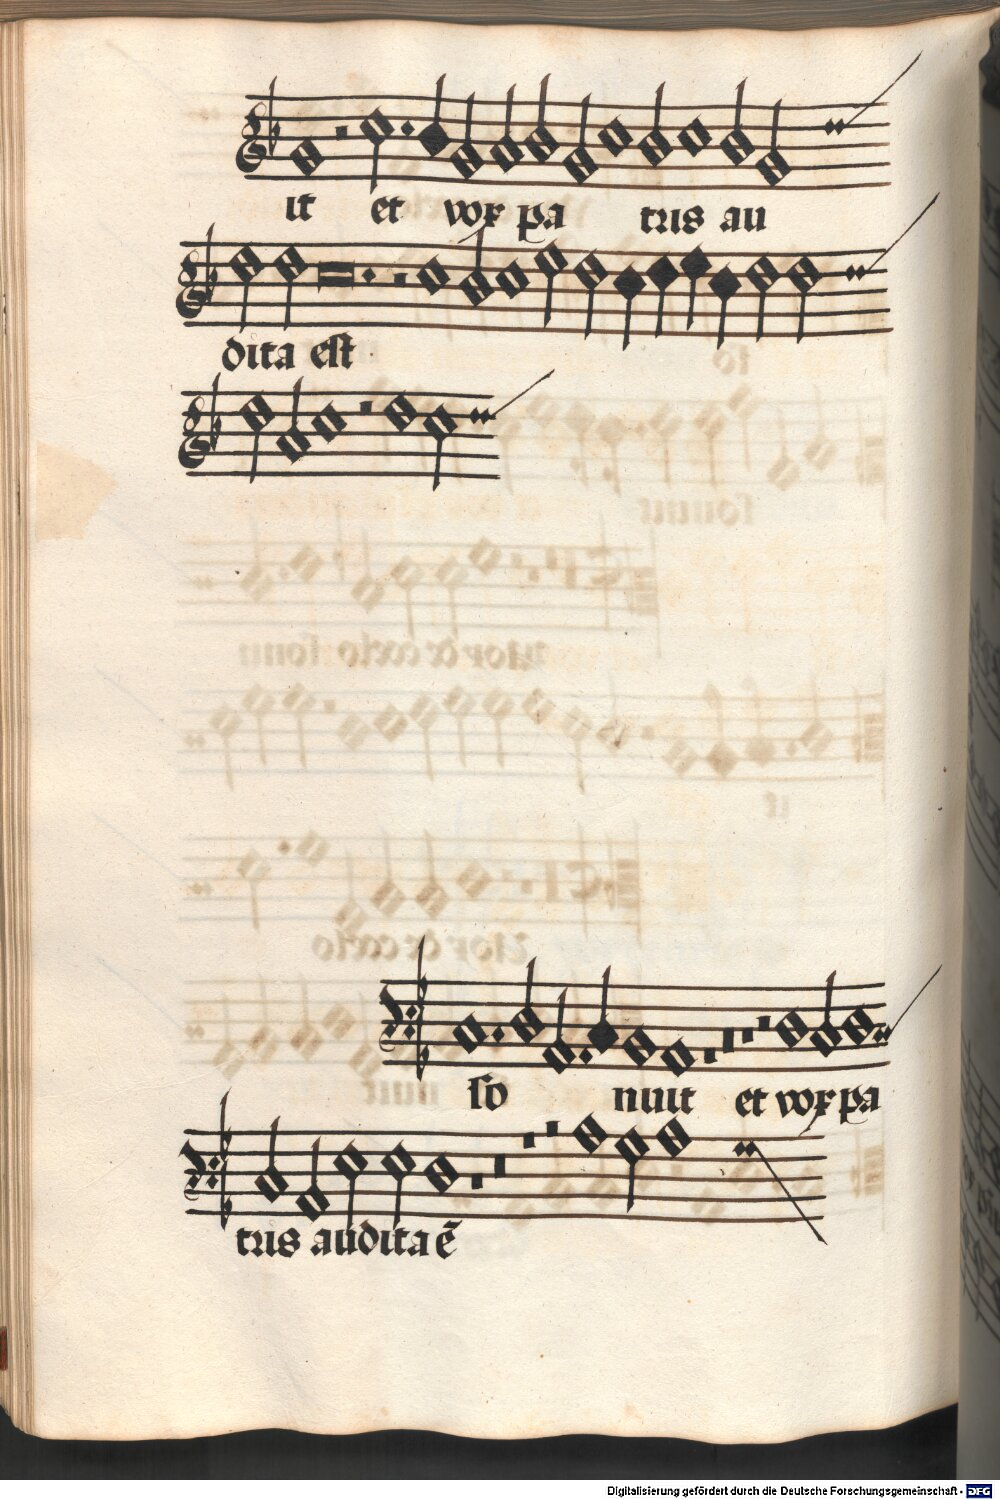 it et vox pa tris au
dita est
so nuit et vox pa
tris audita ē
Digitalisierung gefördert durch die Deutsche Forschungsgemeinschaft - DFG